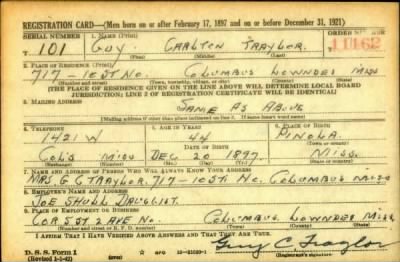 REGISTRATION CARD—(Men born on or after February 17, 1897 and on or before December 31, 1921)
SERIAL NUMBER 1. NAME (Print) ORDER NUMBER
T 101 GUY CARLTON TRAYLOR 11162
(First) (Middle) (Last)
2. PLACE OF RESIDENCE (Print)
717-10 ST NO. COLUMBUS LOWNDES MISS
(Number and street) (Town, township, village, or city) (County) (State)
[THE PLACE OF RESIDENCE GIVEN ON THE LINE ABOVE WILL DETERMINE LOCAL BOARD
JURISDICTION; LINE 2 OF REGISTRATION CERTIFICATE WILL BE IDENTICAL]
3. MAILING ADDRESS
SAME AS ABOVE
[Mailing address if other than place indicated on line 2. If same insert word same]
4. TELEPHONE 5. AGE IN YEARS 6. PLACE OF BIRTH
1421 W 44 PINOLA
DATE OF BIRTH
COL'S MISS DEC 20 1897 MISS.
(Exchange) (Number) (Mo.) (Day) (Yr.) (State or country)
7. NAME AND ADDRESS OF PERSON WHO WILL ALWAYS KNOW YOUR ADDRESS
MRS G C TRAYLOR. 717-10 ST. NO. COLUMBUS MISS
8. EMPLOYER'S NAME AND ADDRESS
JOE SHULL DRUGGIST
9. PLACE OF EMPLOYMENT OR BUSINESS
COR 5 ST 2 AVE NO. COLUMBUS LOWNDES MISS
(Number and street or R. F. D. number) (Town) (County) (State)
I AFFIRM THAT I HAVE VERIFIED ABOVE ANSWERS AND THAT THEY ARE TRUE.
D. S. S. Form 1 Guy C Traylor
(Revised 1-1-42) (over) 16—21630-1